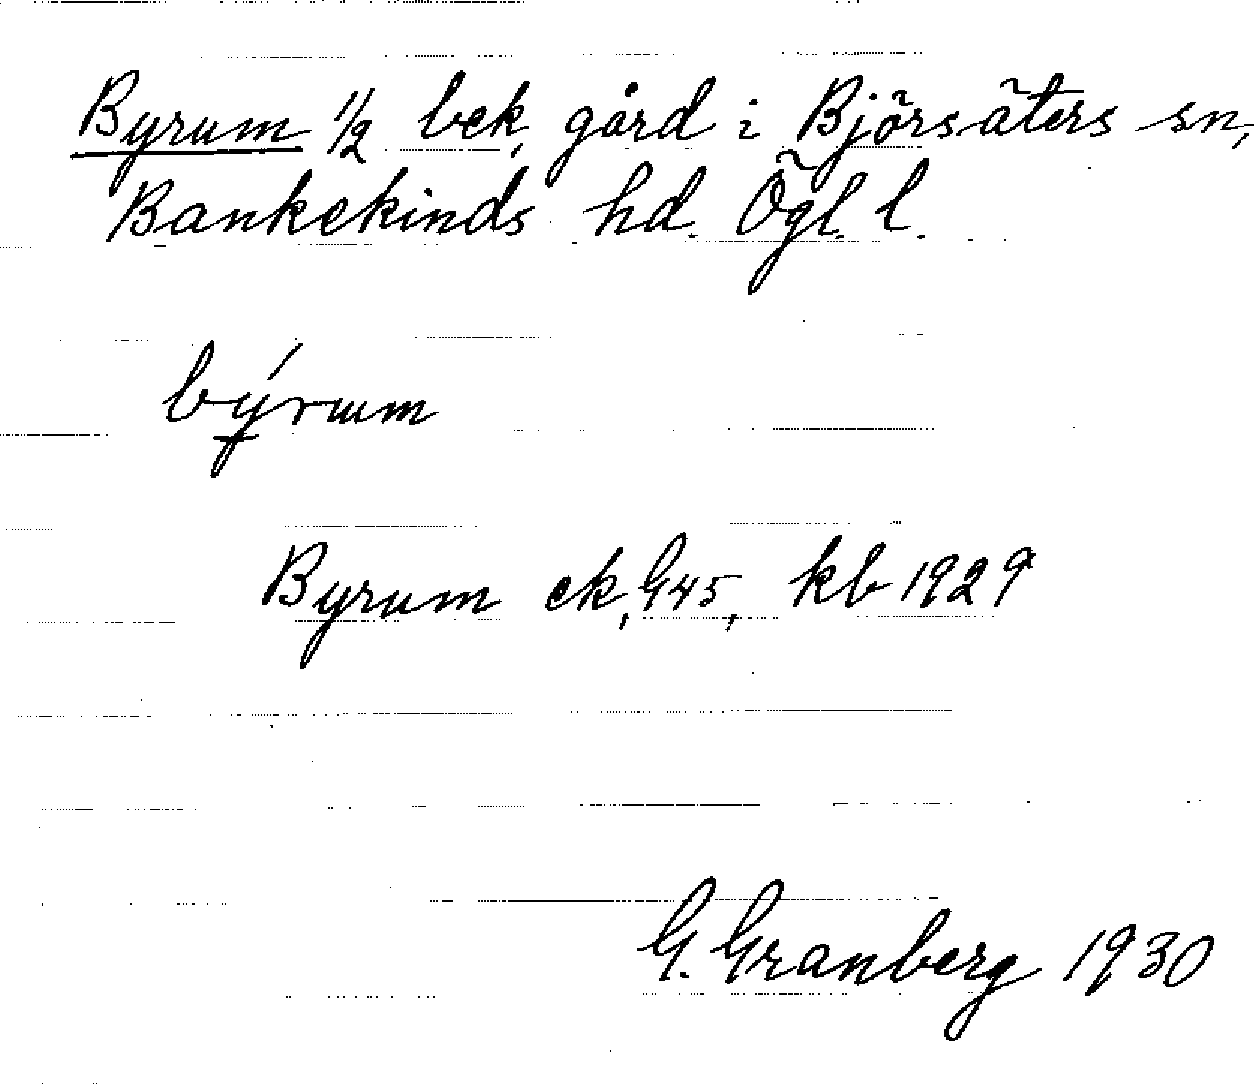 Byrum 1/2 bek, gård i Björsäters sn,
Bankekinds hd. Ögl. l.
býrum
Byrum ek, G45, kb 1929
G. Granberg 1930